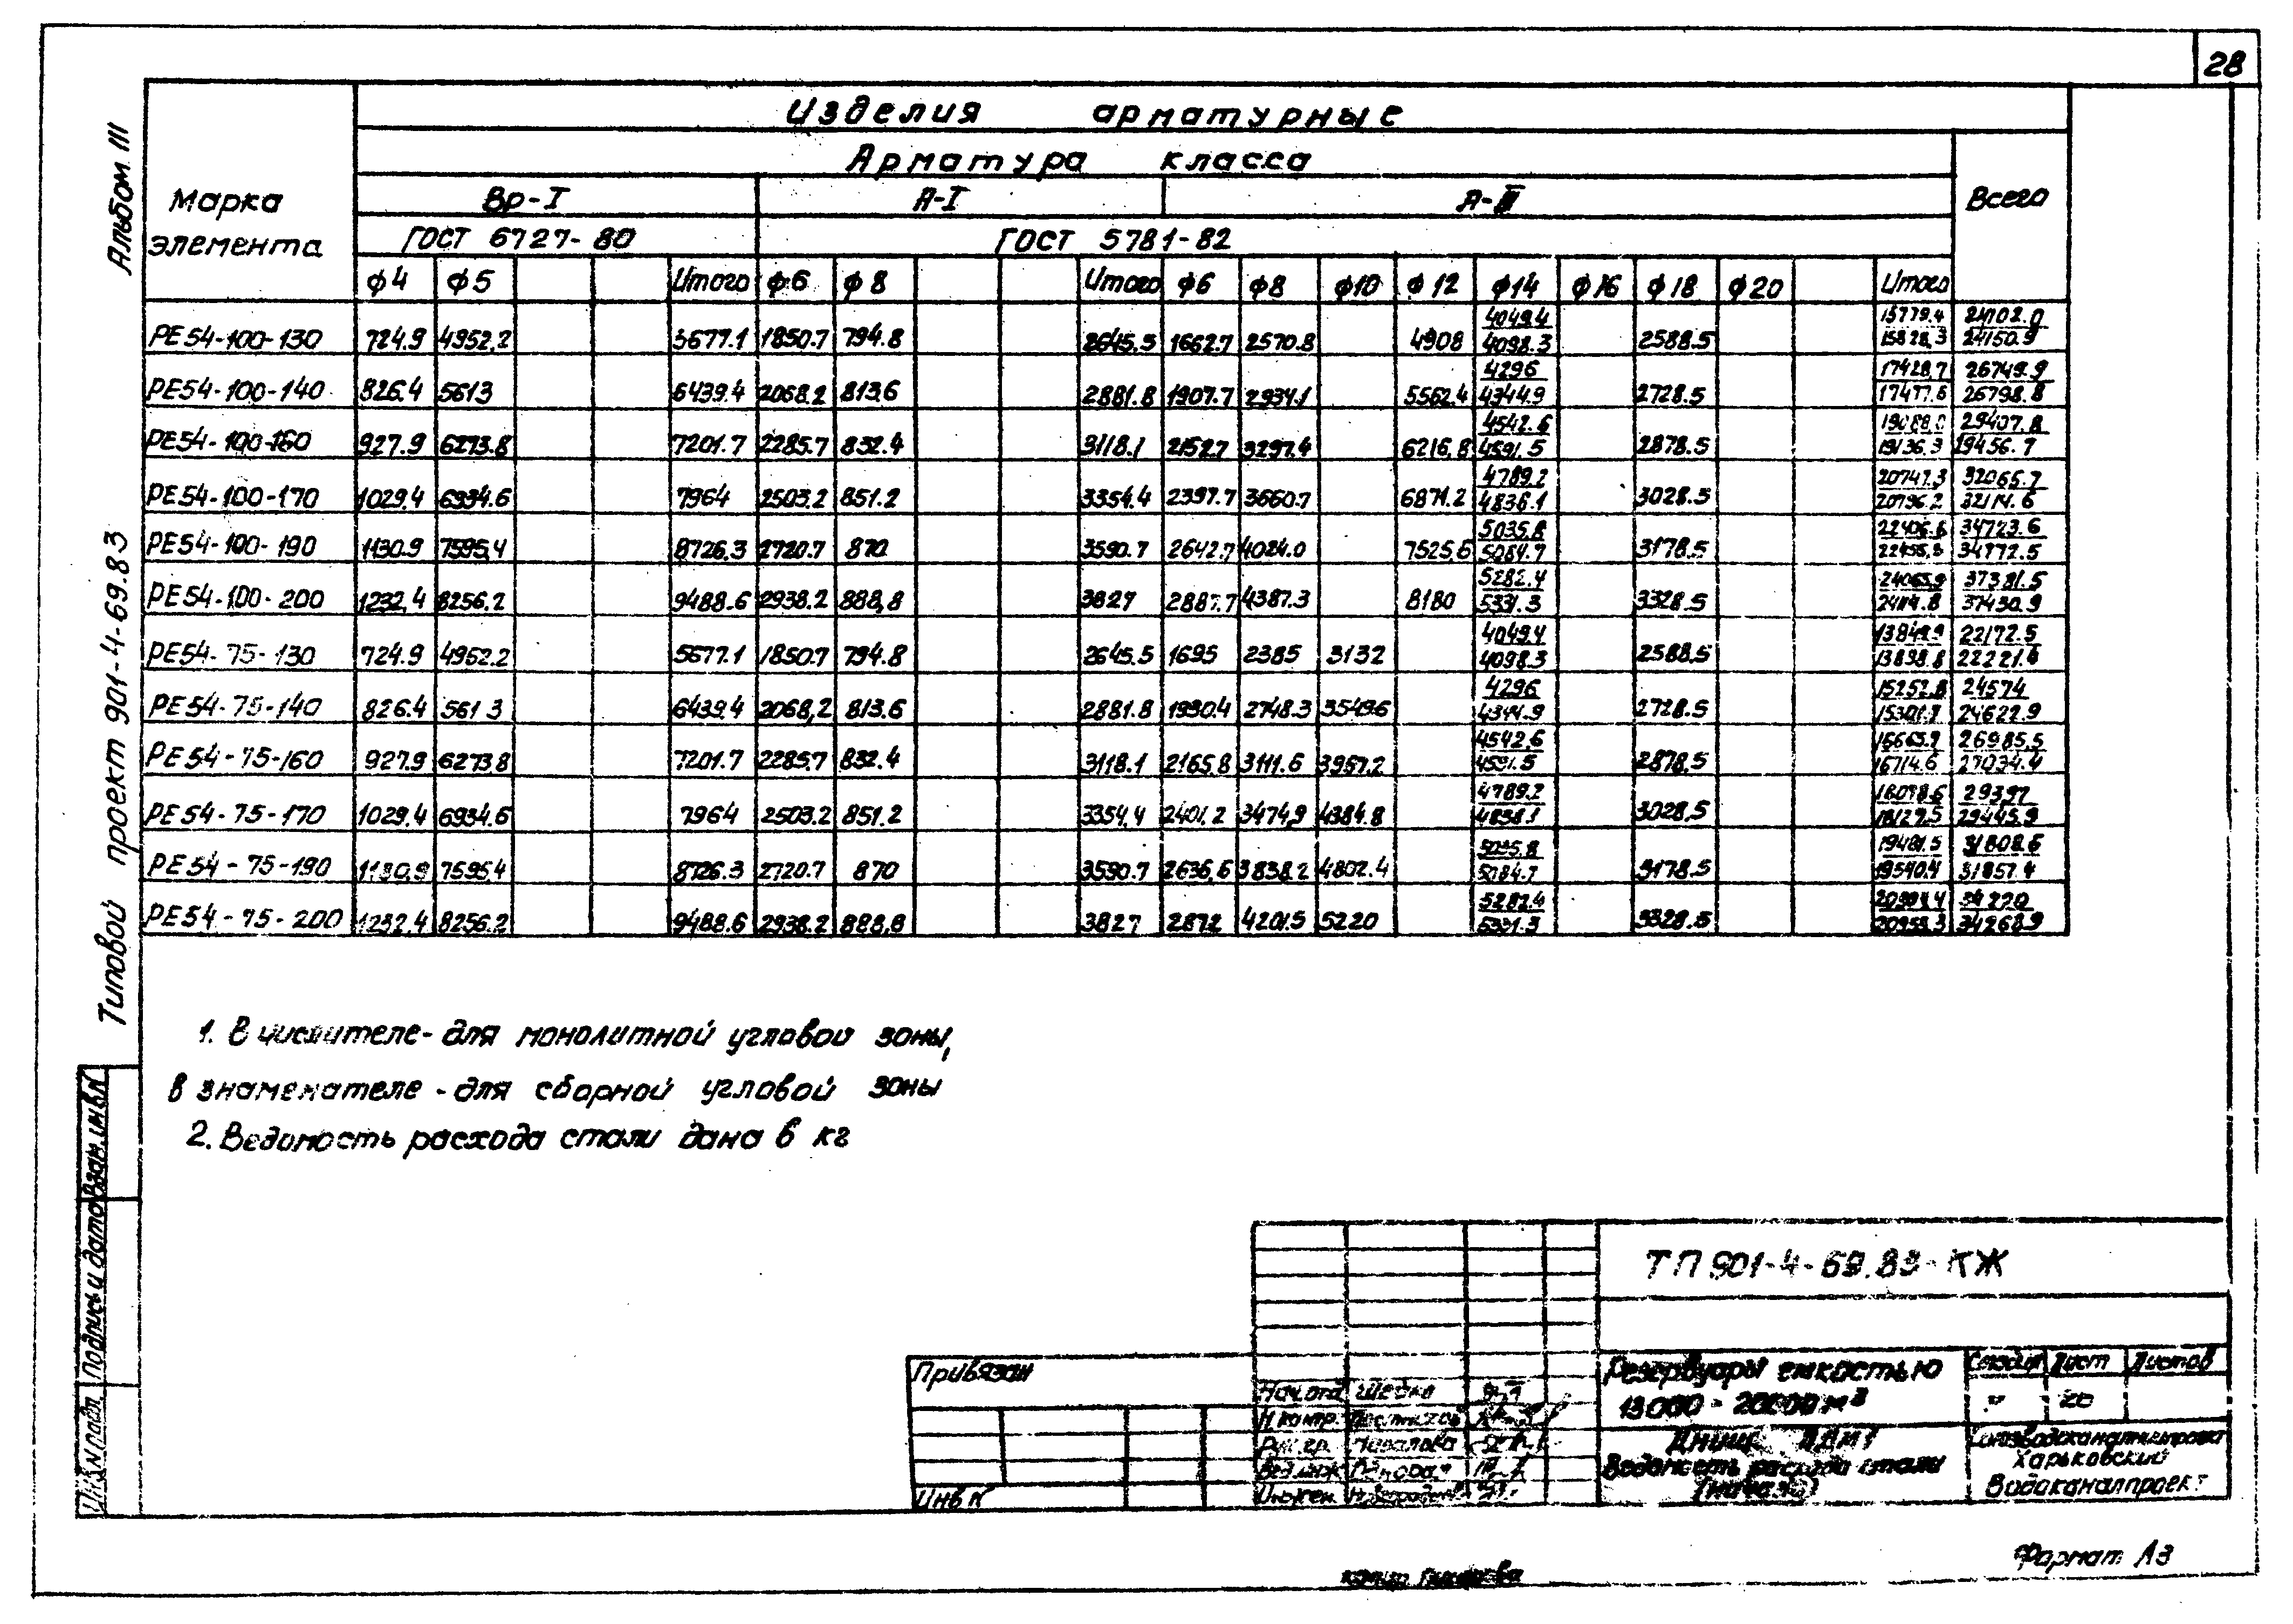 28
Альбом III
Типовой проект 901-4-69.83
Изделия арматурные
Марка элемента
Арматура класса
Всего
Вр-I
А-I
А-III
ГОСТ 6727-80
ГОСТ 5781-82
ф4 ф5 Итого ф6 ф8 Итого ф6 ф8 ф10 ф12 ф14 ф16 ф18 ф20 Итого
4049.4 15779.4 24102.0
РЕ54-100-130 724.9 4952.2 5677.1 1850.7 794.8 2645.5 1662.7 2570.8 4908 4098.3 2588.5 15828.3 24150.9
4296 17428.7 26749.9
РЕ54-100-140 826.4 5613 6439.4 2068.2 813.6 2881.8 1907.7 2934.1 5562.4 4344.9 2728.5 17477.6 26798.8
4542.6 19088.0 29407.8
РЕ54-100-160 927.9 6273.8 7201.7 2285.7 832.4 3118.1 2152.7 3297.4 6216.8 4591.5 2878.5 19136.9 19456.7
4789.2 20747.3 32065.7
РЕ54-100-170 1029.4 6934.6 7964 2503.2 851.2 3354.4 2397.7 3660.7 6871.2 4838.1 3028.5 20796.2 32114.6
5035.8 22406.6 34723.6
РЕ54-100-190 1130.9 7595.4 8726.3 2720.7 870 3590.7 2642.7 4024.0 7525.6 5084.7 3178.5 22455.5 34772.5
5282.4 24065.9 37381.5
РЕ54-100-200 1232.4 8256.2 9488.6 2938.2 888,8 3827 2887.7 4387.3 8180 5331.3 3328.5 24114.8 37430.9
4049.4 13849.9 22172.5
РЕ54-75-130 724.9 4952.2 5677.1 1850.7 794.8 2645.5 1695 2385 3132 4098.3 2588.5 13898.8 22221.4
4296 15252.8 24574
РЕ54-75-140 826.4 5613 6439.4 2068,2 813.6 2881.8 1930.4 2748.3 3549.6 4344.9 2728.5 15301.7 24622.9
4542.6 16665.7 26985.5
РЕ54-75-160 927.9 6273.8 7201.7 2285.7 832.4 3118.1 2165.8 3111.6 3967.2 4591.5 2878.5 16714.6 27034.4
4789.2 18078.6 29397
РЕ54-75-170 1029.4 6934.6 7964 2503.2 851.2 3354.4 2401.2 3474,9 4384.8 4838.1 3028.5 18127.5 29445.9
5035.8 19491.5 31808.5
РЕ54-75-190 1130.9 7595.4 8726.3 2720.7 870 3590.7 2636.6 3838.2 4802.4 5084.7 3178.5 19540.4 31857.4
5282.4 20904.4 34220
РЕ54-75-200 1232.4 8256.2 9488.6 2938.2 888.8 3827 2872 4201.5 5220 5331.3 3328.5 20953.3 34268.9
1. В числителе - для монолитной угловой зоны,
в знаменателе - для сборной угловой зоны
2. Ведомость расхода стали дана в кг
Взам.инв.N
Подпись и дата
Инв.N подл.
ТП 901-4-69.83-КЖ
Привязан
Инв N
Нач.отд Шейко
Н.контр.
Рук.гр.
Вед.инж
Инжен.
Резервуары емкостью
13000 - 20000 м3
Ведомость расхода стали
(начало)
Стадия Лист Листов
20
Союзводоканалниипроект
Харьковский
Водоканалпроект
Формат А3